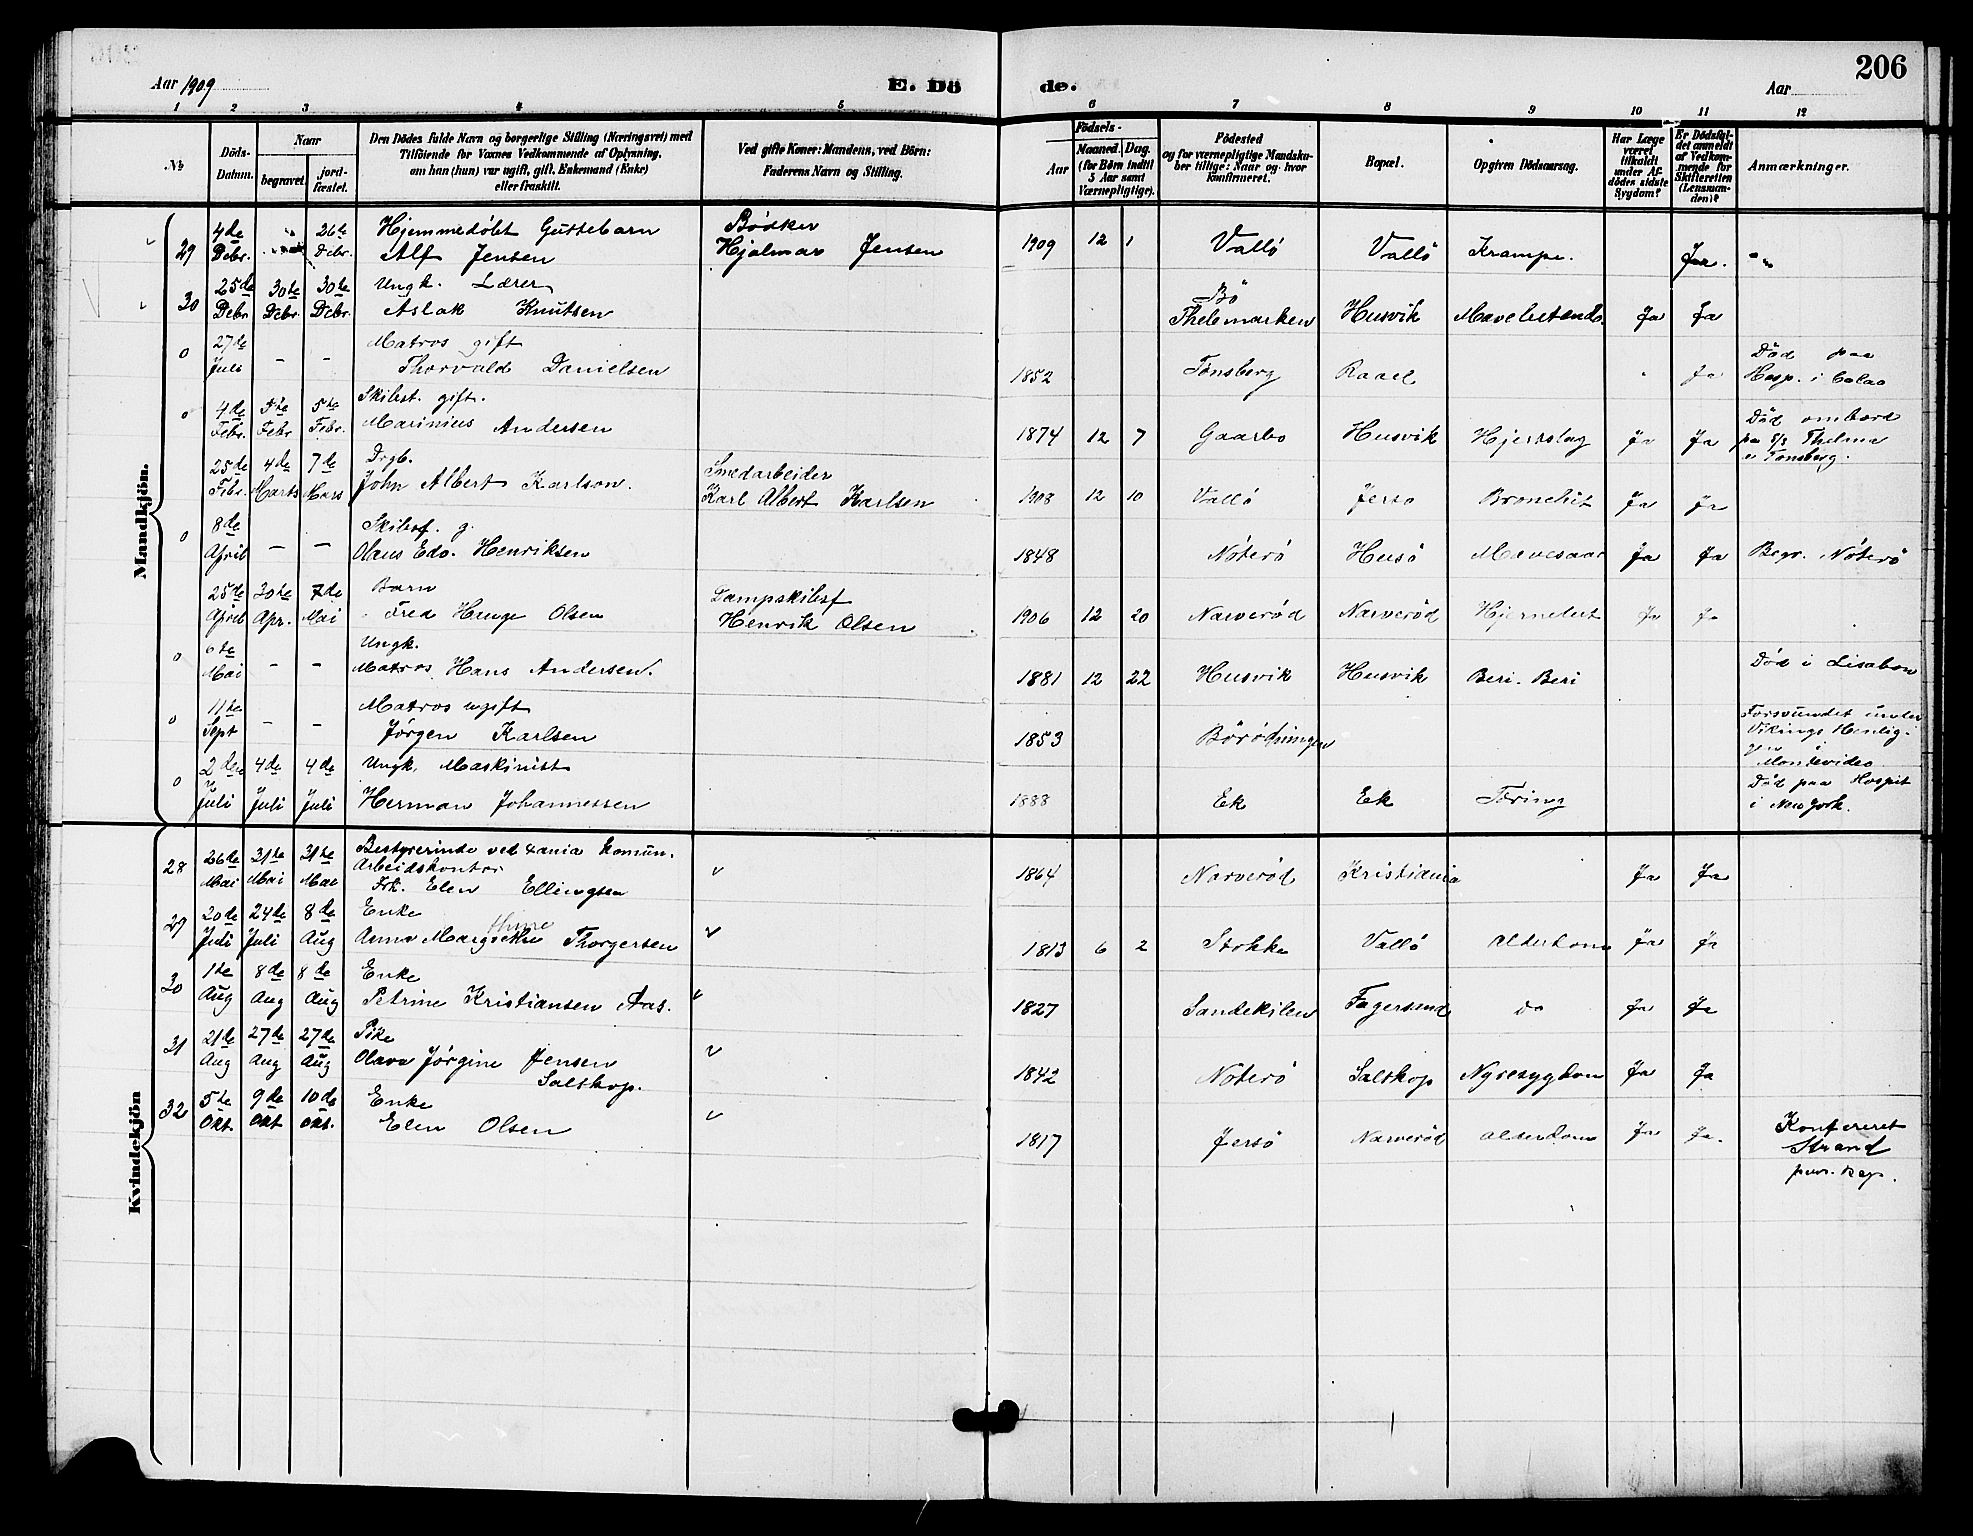 206
Aar 1909
E. Dö
de.
Aar
1 2 3 4 5 6 7 8 9 10 11 12
№
Döds-Datum.
Naar
begravet.
jordfæstet.
Den Dödes fulde Navn og borgerlige Stilling (Næringsvei) med
Tilföiende for Voxnes Vedkommende af Oplysning,
om han (hun) var ugift, gift, Enkemand (Enke)
eller fraskilt.
Ved gifte Koner: Mandens, ved Börn:
Faderens Navn og Stilling.
Födsels-
Aar
Maaned. Dag.
(for Börn indtil
5 Aar samt
Værnepligtige).
Födested
og for værnepligtige Mandska-
ber tillige: Naar og hvor
konfirmeret.
Bopæl.
Opgiven Dödsaarsag.
Har Læge
været
tilkaldt
under Af-
dödes sidste
Sygdom?
Er Dödsfal-
det anmeldt
af Vedkom-
mende for
Skifteretten
(Lensman-
den)?
Anmærkninger.
Mandkjön.
29 4de Debr. 26te Debr. Hjemmedøbt Guttebarn Alf Jensen Bødker Hjalmar Jensen 1909 12 1 Vallö Vallö Krampe. Ja.
30 25de Debr. 30te Debr. 30te Debr. Ungk. Lærer Aslak Knutsen Bö Thelemarken Husvik Ja Ja
0 27de Juli - - Matros gift Thorvald Danielsen 1852 Tønsberg Raael Ja Död paa Hosp. i
0 4de Febr. 5te Febr 5te Febr. Skibst. gift. Marinius Andersen 1874 12 7 Gaarbo Husvik Hjerteslag Ja Ja Död ombord paa S/S Thelma Tønsberg.
25de Febr. 4de Marts 7de Mars Drgb. John Albert Karlson. Smedarbeider Karl Albert Karlsen 1908 12 10 Vallö Jersø Bronchit Ja Ja
0 8de April - - Skibsf. g. Olaus Edv. Henriksen 1848 Nöterö Husö Mavesaar Ja Ja Begr. Nöterö
25de April 30te Apr. 7de Mai Barn Fred Hauge Olsen Dampskibsf Henrik Olsen 1906 12 20 Narverød Narverød Ja Ja
0 6te Mai - - Ungk. Matros Hans Andersen. 1881 12 22 Husvik Husvik Beri-Beri Død i Lisabon
0 11te Sept - - Matros ugift Jørgen Karlsen 1853 Forsvundet under Vikings Henlig- i Montevideo
0 2den Juli 4de Juli 4de Juli Ungk. Maskinist Herman Johannessen 1888 Ek Ek Tæring Død paa Hospit i New York.
Kvindekjön
28 26de Mai 31te Mai 31te Mai Bestyrerinde ved +ania Komun. Arbeidskontor Frk. Elen Ellingsen " 1864 Narverød Kristiania Ja Ja
29 20de Juli 24de Juli 8de Aug Enke Anna Margrethe Thorgersen " 1813 6 2 Stokke Vallö Alderdom Ja Ja
30 1te Aug 8de Aug 8de Aug Enke Petrine Kristiansen Aas. " 1827 Sandekilen Fagersund do Ja Ja
31 21de Aug 27de Aug 27de Aug Pike Olava Jørgine Jensen Saltkop. " 1842 Nöterö Saltkop Nyresygdom Ja Ja
32 5te Okt. 9de Okt 10de Okt. Enke Elen Olsen " 1817 Jersö Narverød Alderdom Ja Ja. Konfereret Strand